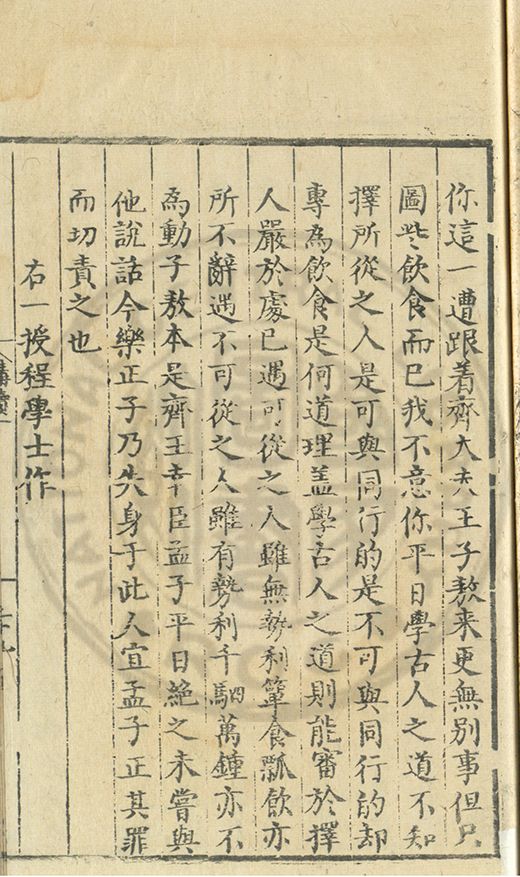 你這一遭跟着齊大夫王子敖来更無别事但只
圖些飲食而已我不意你平日學古人之道不知
擇所從之人是可與同行的是不可與同行的却
專為飲食是何道理盖學古人之道則能審於擇
人嚴於處已遇可從之人雖無勢利簞食瓢飲亦
所不辭遇不可從之人雖有勢利千駟萬鍾亦不
為動子敖本是齊王幸臣孟子平日絶之未嘗與
他說話今樂正子乃失身于此人宜孟子正其罪
而切責之也
右一授程學士作